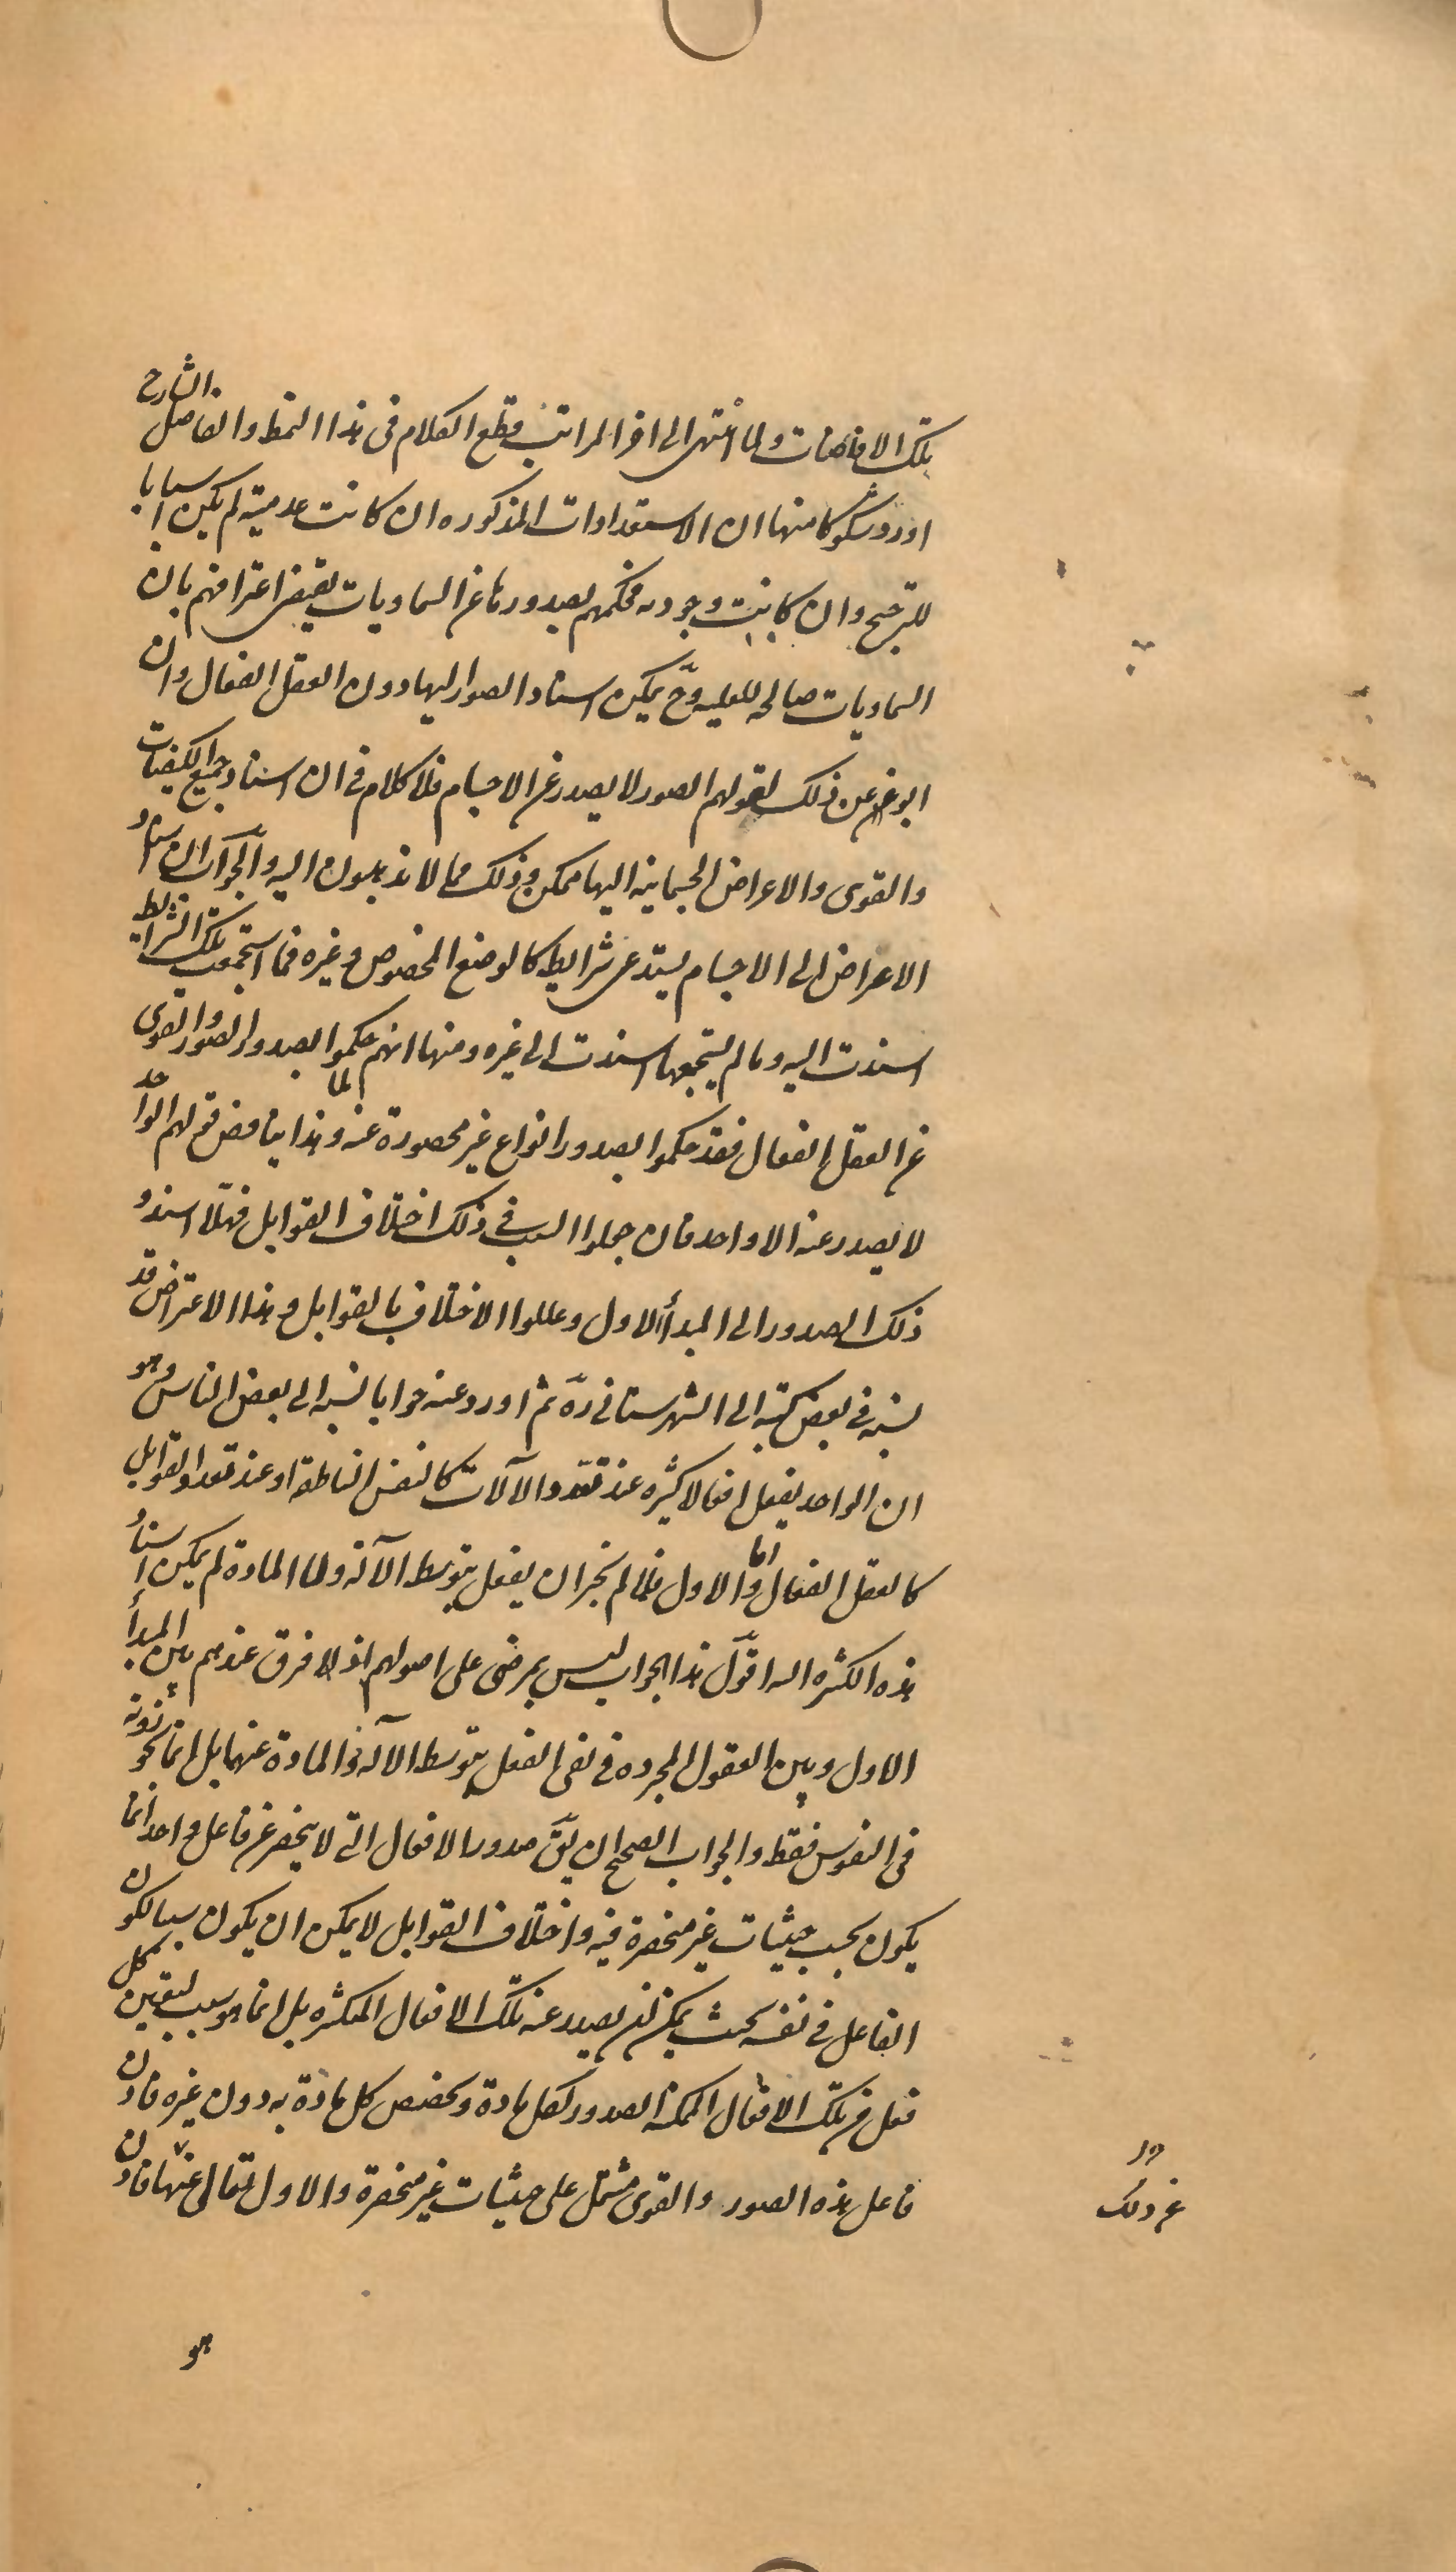 تلك الافاضات ولما انتهى الى اخر المراتب قطع الكلام فى هذا النمط والفاضل الشارح
اورد شكوكا منها ان الاستعدادات المذكوره ان كانت عدمية لم يكن اسبابا
للترجيح وان كانت وجوديه فحكمهم بصدورها عن السماويات يقتضى اعترافهم بان
السماويات صالحه للعليه وح يمكن اسناد الصور اليها دون العقل الفعال وان
ابو عن ذلك لقولهم الصور لا يصدر عن الاجسام فلا كلام فى ان اسناد جميع الكيفيات
والقوى والاعراض الجسمانيه اليها ممكن وذلك مما لا يذهبون اليه والجواب ان اسناد
الاعراض الى الاجسام يستدعى شرايط كالوضع المخصوص وغيره فما استجمعت تلك الشرايط
اسندت اليه وما لم يستجمعها اسندت الى غيره ومنها انهم لما حكموا بصدور الصور والقوى
عن العقل الفعال فقد حكموا بصدور انواع غير محصورة عنه وهذا يناقض قولهم الواحد
لا يصدر عنه الا واحد فان جعلوا السبب فى ذلك اختلاف القوابل فهلا اسندوا
ذلك الصدور الى المبدأ الاول وعللوا الاختلاف بالقوابل وهذا الاعتراض قد
نسبه فى بعض كتبه الى الشهرستانى ره ثم اورد عنه جوابا نسبه الى بعض الناس وهو
ان الواحد يفعل افعالا كثيره عند تعدد الالآت كالنفس الناطقة او عند تعدد القوابل
كالعقل الفعال واما الاول فلما لم يجز ان يفعل بتوسط الآلة ولا المادة لم يمكن اسناد
هذه الكثره اليه اقول هذا الجواب ليس بمرضى على اصولهم اذ لا فرق عندهم بين المبدأ
الاول وبين العقول المجرده فى نفى الفعل بتوسط الآله والمادة عنهما بل انما يجوزونه
فى النفوس فقط والجواب الصحيح ان يق صدور الافعال التى لا ينحصر عن فاعل واحد انما
يكون بحسب حيثيات غير منحصرة فيه واختلاف القوابل لا يمكن ان يكون سببا لكون
الفاعل فى نفسه بحيث يمكن ان يصدر عنه تلك الافعال المتكثره بل انما هو سبب لتعين كل
فعل من تلك الافعال الممكنة الصدور لكل مادة وتخصص كل مادة به دون غيره فاذن
فاعل هذه الصور والقوى مشتمل على حيثيات غير منحصرة والاول تعالى عنها فاذن
عن ذلك
هو